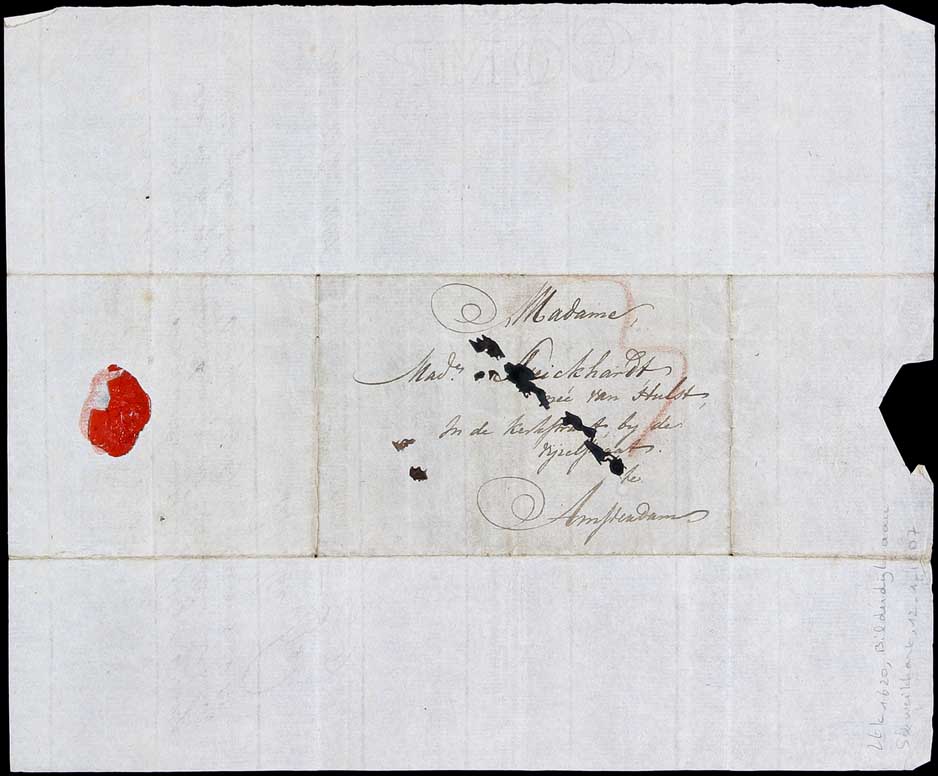 Madame,
Made. Schweickhardt
née van Hulst,
In de Kerkstraat, by de
Vyzelstraat.
te
Amsterdam
LtK 1620, Bilderdijk aan
Schweikhardt, 12-1-1807